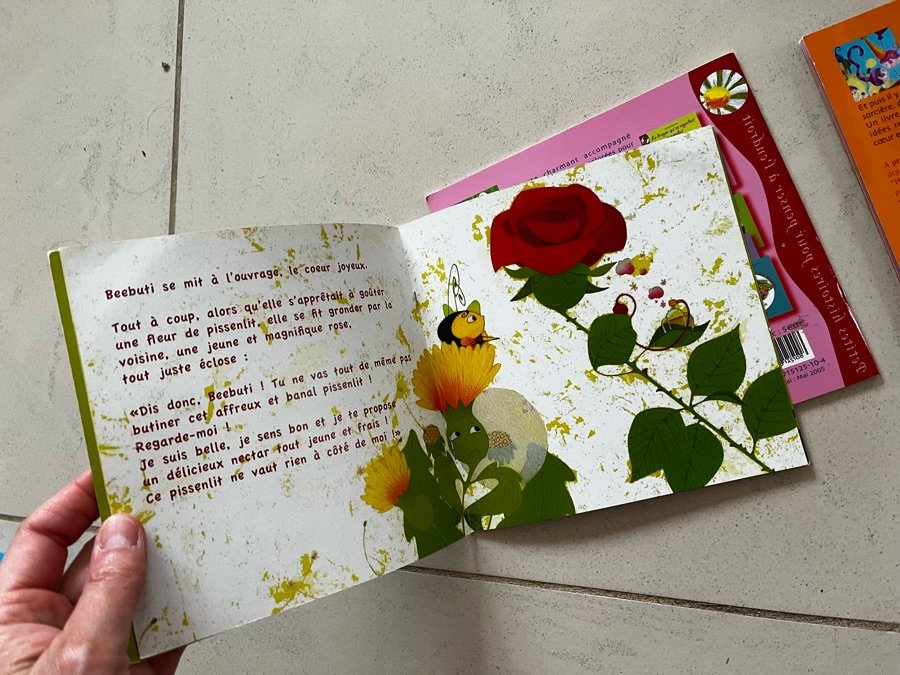 Beebuti se mit à l'ouvrage, le coeur joyeux.
Tout à coup, alors qu'elle s'apprêtait à goûter
une fleur de pissenlit, elle se fit gronder par la
voisine, une jeune et magnifique rose,
tout juste éclose :
«Dis donc, Beebuti ! Tu ne vas tout de même pas
butiner cet affreux et banal pissenlit !
Regarde-moi !
Je suis belle, je sens bon et je te propose
un délicieux nectar tout jeune et frais !
Ce pissenlit ne vaut rien à côté de moi !»
charmant accompagné
pour
Petites histoires pour penser à l'endroit
15125-10-4
Mai 2005
Et puis il y
sorcière,
Un livre
idées
cœur e